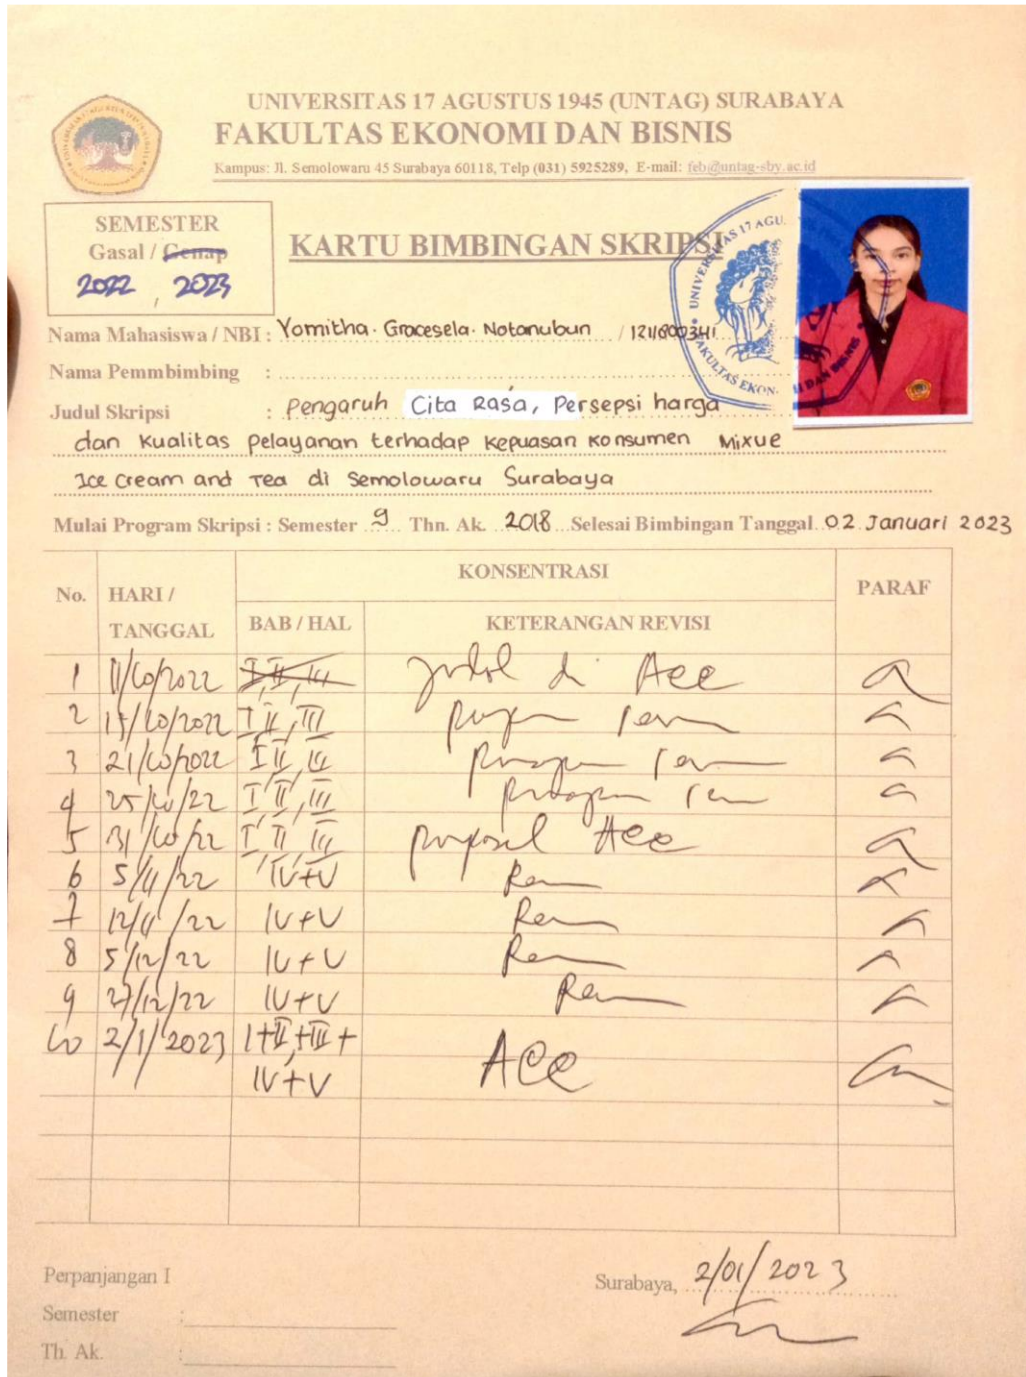 UNIVERSITAS 17 AGUSTUS 1945 (UNTAG) SURABAYA
FAKULTAS EKONOMI DAN BISNIS
Kampus: Jl. Semolowaru 45 Surabaya 60118, Telp (031) 5925289, E-mail: feb@untag-sby.ac.id
SEMESTER
Gasal / Genap
2022, 2023
KARTU BIMBINGAN SKRIPSI
Nama Mahasiswa / NBI : Yomitha. Gracesela. Notanubun / 1211800341
Nama Pemmbimbing :
Judul Skripsi : Pengaruh Cita Rasa, Persepsi harga
dan Kualitas pelayanan terhadap kepuasan konsumen Mixue
Ice Cream and Tea di Semolowaru Surabaya
Mulai Program Skripsi : Semester 9 Thn. Ak. 2018 Selesai Bimbingan Tanggal 02 Januari 2023
No. HARI / TANGGAL KONSENTRASI PARAF
BAB / HAL KETERANGAN REVISI
1 11/10/2022 I, II, III judul di Acc
2 15/10/2022 I, II, III
3 21/10/2022 I, II, III
4 25/10/22 I, II, III
5 31/10/22 I, II, III proposal Acc
6 5/11/22 IV+V
7 12/11/22 IV+V
8 5/12/22 IV+V
9 27/12/22 IV+V
10 2/1/2023 I+II+III+
IV+V Acc
Perpanjangan I
Semester :
Th. Ak. :
Surabaya, 2/01/2023